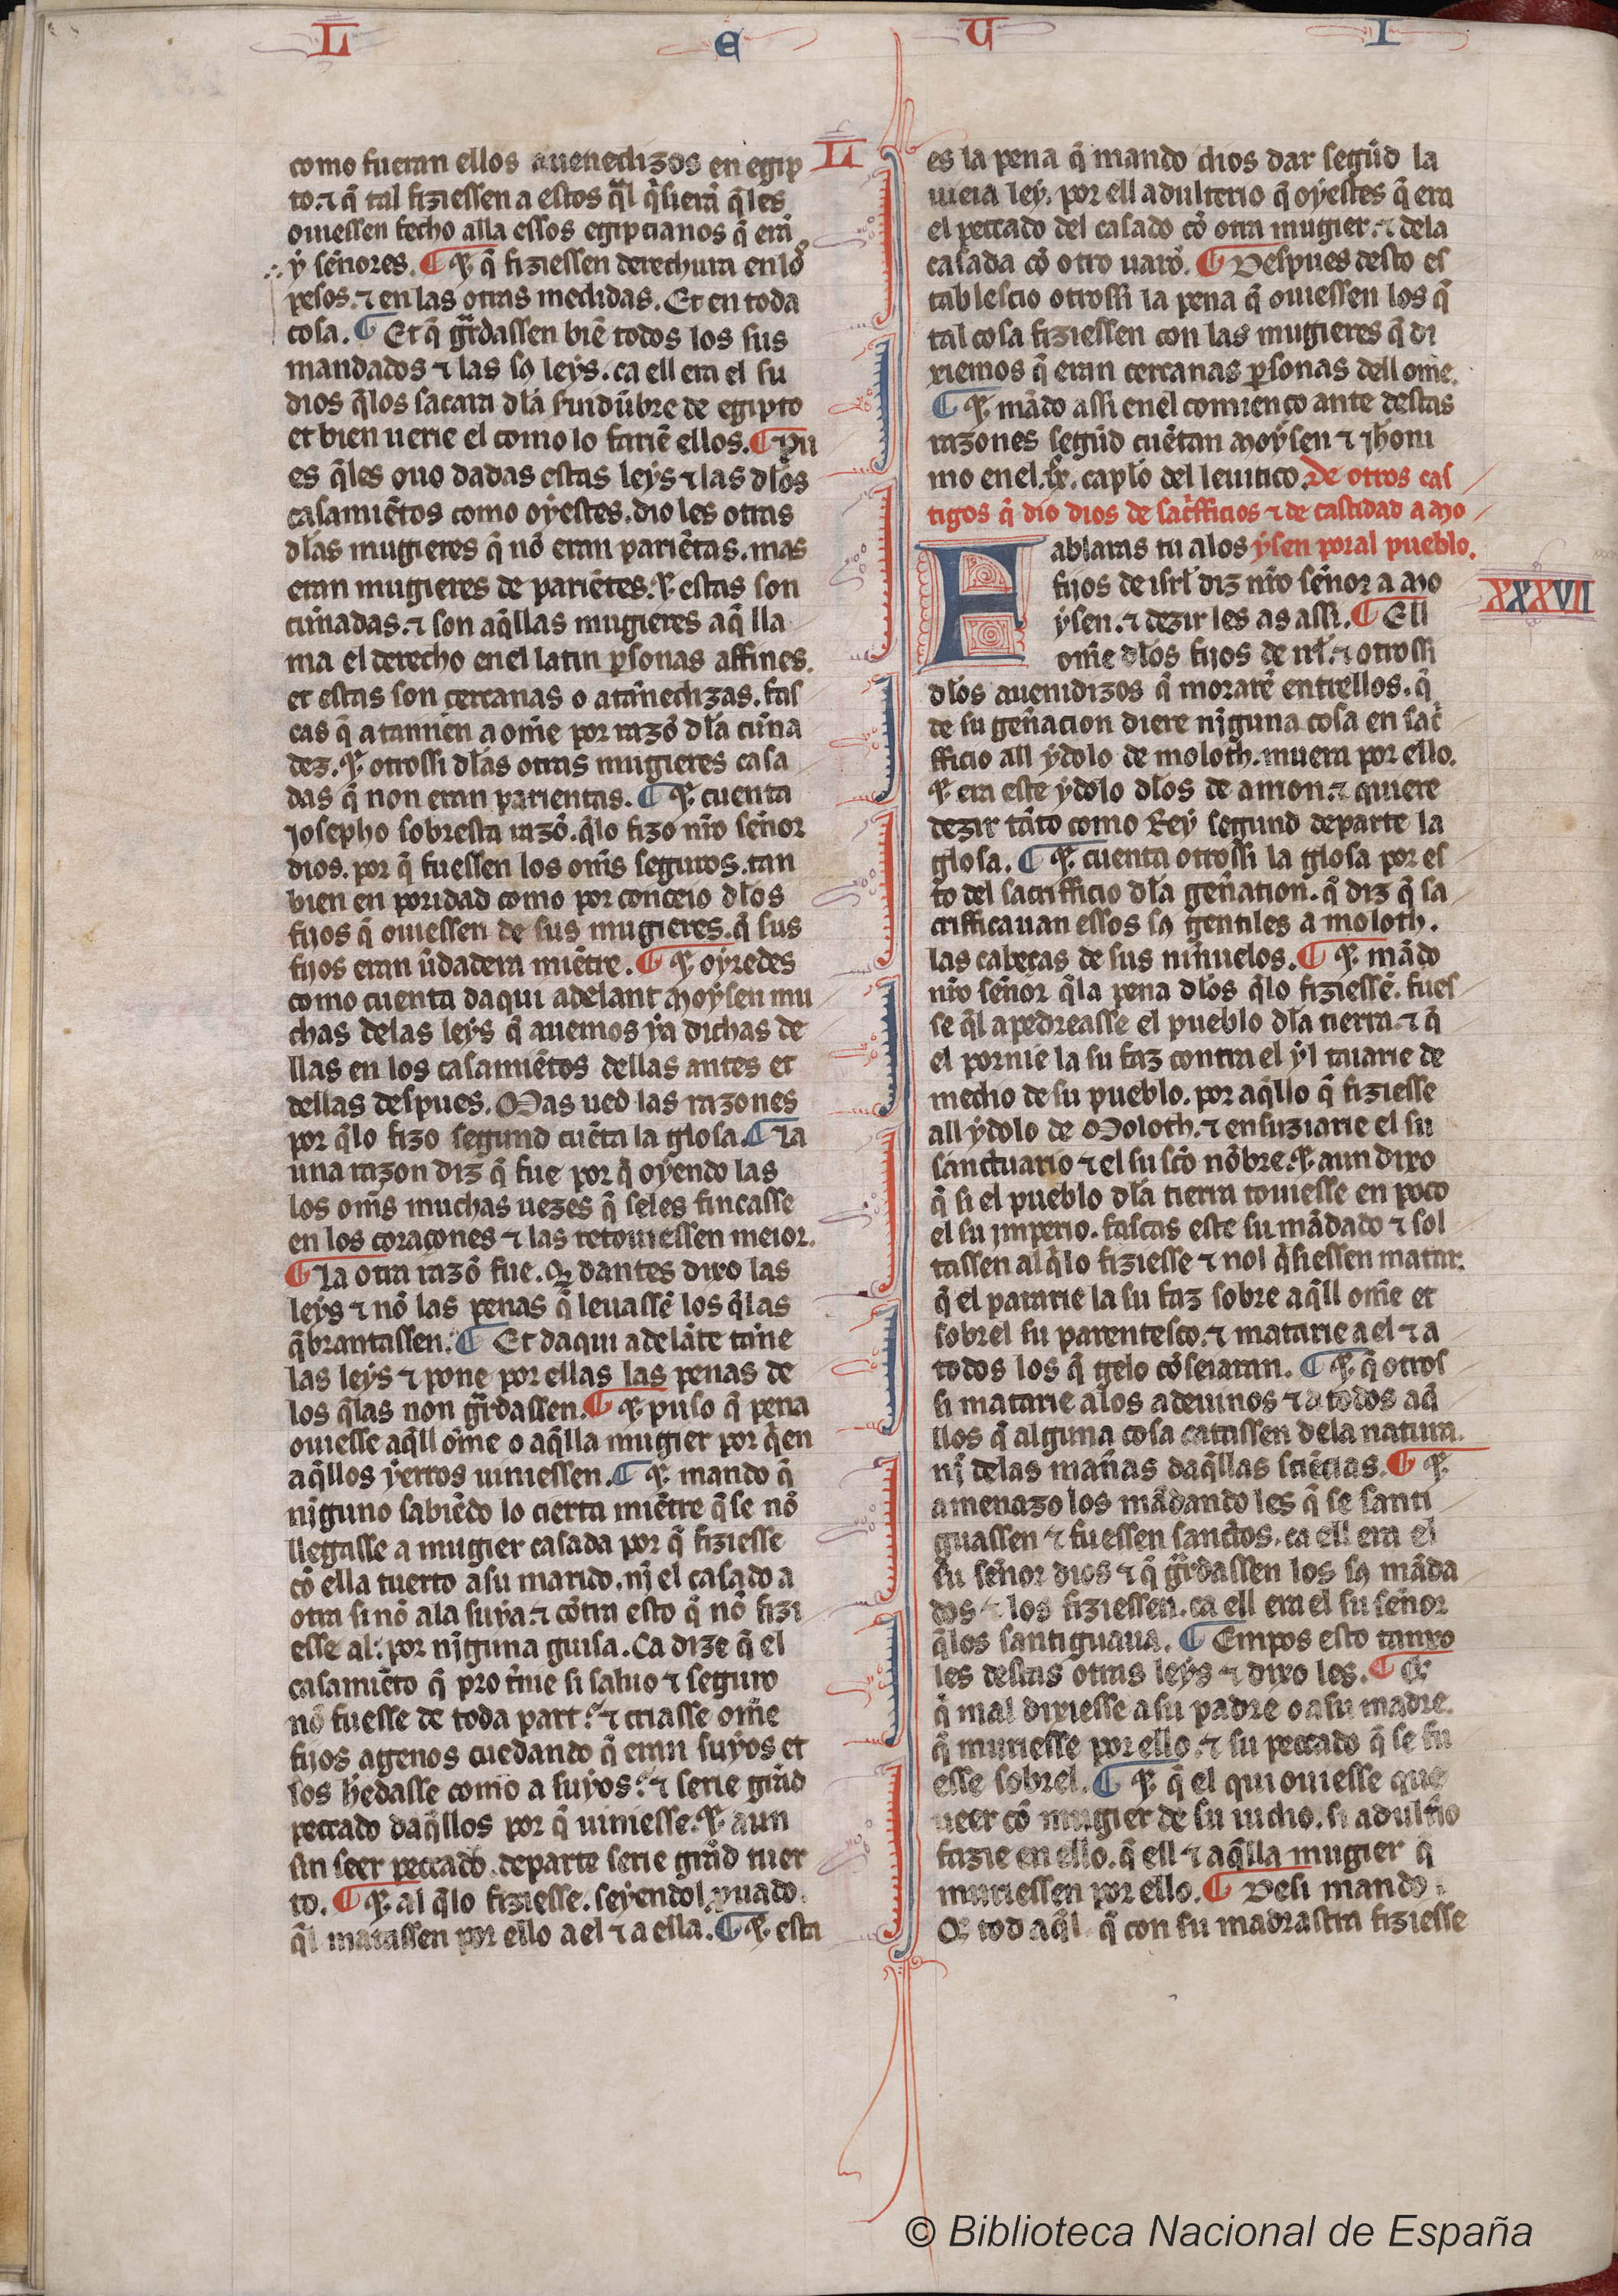 L E U I
como fueran ellos auenedizos en egip
to. ⁊ q̃ tal fiziessen a estos q̃l q̃sierã q̃les
ouiessen fecho alla essos egipcianos q̃ erã
ẏ señores. ¶ ⁊ q̃ fiziessen derechura en lo
pesos. ⁊ en las otras medidas. Et en toda
cosa. ¶ Et q̃ gr̃dassen biẽ todos los sus
mandados ⁊ las sꝯ leẏs. ca ell era el su
dios q̃los sacara dl̃a siruidũbre de egipto
et bien uerie el como lo fariẽ ellos. ¶ Pu
es q̃les ouo dadas estas leẏs ⁊ las dl̃os
casamiẽtos como oẏestes. dio les otras
dl̃as mugieres q̃ nõ eran pariẽtas. mas
eran mugieres de pariẽtes. ⁊ estas son
cuñadas. ⁊ son aq̃llas mugieres aq̃ lla
ma el derecho en el latin p̃sonas affines.
et estas son cercanas o atañedizas. fas
cas q̃ atannen a om̃e por razõ dl̃a cuña
dez. ⁊ otrossi dl̃as otras mugieres casa
das q̃ non eran parientas. ¶ ⁊ cuenta
Josepho sobresta razõ. q̃lo fizo nr̃o señor
dios. por q̃ fuessen los om̃s seguros. tan
bien en poridad como por conceio dl̃os
fijos q̃ ouiessen de sus mugieres. q̃ sus
fijos eran ũdadera miẽtre. ¶ ⁊ oẏredes
como cuenta daqui adelant Moẏsen mu
chas delas leẏs q̃ auemos ẏa dichas de
llas en los casamiẽtos dellas antes et
dellas despues. Mas ued las razones
por q̃lo fizo segund cuẽta la glosa. ¶ La
una razon diz q̃ fue por q̃ oẏendo las
los om̃s muchas uezes q̃ seles fincasse
en los coraçones ⁊ las retouiessen meior.
¶ La otra razõ fue. Q̃ dantes dixo las
leẏs ⁊ nõ las penas q̃ leuassẽ los q̃las
q̃brantassen. ¶ Et daqui adelãte tañe
las leẏs ⁊ pone por ellas las penas de
los q̃las non gr̃dassen. ¶ ⁊ puso q̃ pena
ouiesse aq̃ll om̃e o aq̃lla mugier por q̃en
aq̃llos ẏerros uiniessen. ¶ ⁊ mando q̃
nĩguno sabiẽdo lo cierta miẽtre q̃ se nõ
llegasse a mugier casada por q̃ fiziesse
cõ ella tuerto a su marido. nĩ el casado a
otra si nõ ala suẏa. ⁊ cõtra esto q̃ nõ fizi
esse al. por nĩguna guisa. Ca dize q̃ el
casamiẽto q̃ pro t̃iue si saluo ⁊ seguro
nõ fuesse de toda part. ⁊ criasse om̃e
fijos agenos cuedando q̃ eran suẏos et
los h̃edasse como a suẏos. ⁊ serie grãd
peccado daq̃llos por q̃ uiniesse. ⁊ aun
sin seer peccado. departe serie grãd tuer
to. ¶ ⁊ al q̃lo fiziesse. seẏendol puado.
q̃l matassen por ello a el ⁊ a ella. ¶ ⁊ esta
L
es la pena q̃ mando dios dar segũd la
uieia leẏ. por ell adulterio q̃ oẏestes q̃ era
el peccado del casado cõ otra mugier. ⁊ dela
casada cõ otro uarõ. ¶ Despues desto es
tablescio otrossi la pena q̃ ouiessen los q̃
tal cosa fiziessen con las mugieres q̃ di
xiemos q̃ eran cercanas p̃sonas dell om̃e.
¶ ⁊ mãdo assi en el comienço ante destas
razones segũd cuẽtan Moẏsen ⁊ Jh̃oni
mo en el .xx. capl̃o del leuitico. De otros cas
tigos q̃ dio dios de sac̃fficios ⁊ de castidad a Mo
ẏsen poral pueblo.
Hablaras tu alos
fijos de isrl̃ diz nr̃o señor a Mo
ẏsen. ⁊ dezir les as assi. ¶ Ell
om̃e dl̃os fijos de irl̃. ⁊ otrossi
dl̃os auenidizos q̃ morarẽ entrellos. q̃
de su geñacion diere nĩguna cosa en sac̃
fficio all ẏdolo de moloth. muera por ello.
⁊ era este ẏdolo dl̃os de amon. ⁊ quiere
dezir tãto como Reẏ segund departe la
glosa. ¶ ⁊ cuenta otrossi la glosa por es
to del sacrifficio dl̃a geñation. q̃ diz q̃ sa
crifficauan essos sꝯ gentiles a moloth.
las cabeças de sus niñuelos. ¶ ⁊ mãdo
nr̃o señor q̃la pena dl̃os q̃lo fiziessẽ. fues
se q̃l apedreasse el pueblo dl̃a tierra. ⁊ q̃
el pornie la su faz contra el ẏl taiarie de
medio de su pueblo. por aq̃llo q̃ fiziesse
all ẏdolo de Moloth. ⁊ ensuziarie el su
sanctuario ⁊ el su sc̃o nõbre. ⁊ aun dixo
q̃ si el pueblo dl̃a tierra touiesse en poco
el su imperio. fascas este su mãdado ⁊ sol
tassen al q̃lo fiziesse ⁊ nol q̃siessen matar.
q̃ el pararie la su faz sobre aq̃ll om̃e et
sobrel su parentesco. ⁊ matarie a el ⁊ a
todos los q̃ gelo cõseiaran. ¶ ⁊ q̃ otros
si matarie alos adeuinos ⁊ a todos aq̃
llos q̃ alguna cosa catassen dela natura.
nĩ delas mañas daq̃llas sciẽcias. ¶ ⁊
amenazo los mãdando les q̃ se santi
guassen ⁊ fuessen sanctos. ca ell era el
su señor dios ⁊ q̃ gr̃dassen los sꝯ mãda
dos ⁊ los fiziessen. ca ell era el su señor
q̃los santiguaua. ¶ Empos esto tanxo
les destas otras leẏs ⁊ dixo les. ¶ Q̃
q̃ mal dixiesse a su padre o a su madre.
q̃ muriesse por ello. ⁊ su peccado q̃ se fu
esse sobrel. ¶ ⁊ q̃ el qui ouiesse que
ueer cõ mugier de su uizño. si adult̃io
fazie en ello. q̃ ell ⁊ aq̃lla mugier q̃
muriessen por ello. ¶ Desi mando
Q̃ tod aq̃l q̃ con su madrastra fiziesse
XXXVII
© Biblioteca Nacional de España